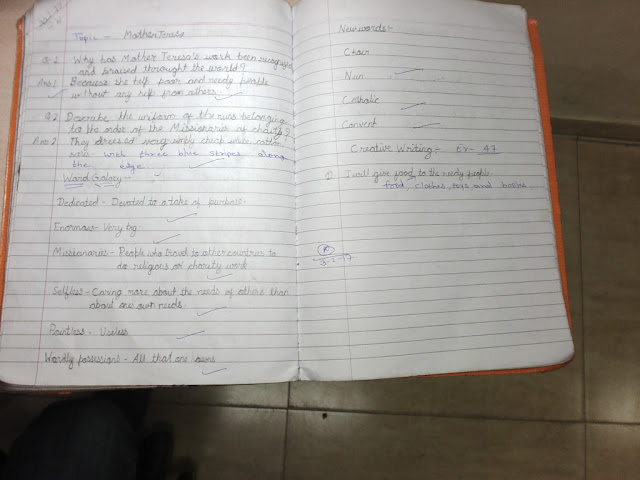 Topic - Mother Teresa
Q.1 Why has Mother Teresa's work been recognised
and praised throught the world?
Ans1 Because she help poor and needy people
without any help from others.
Q.2 Describe the uniform of the nuns belonging
to the order of the Missionaries of charity?
Ans2 They dressed very simply cheap white cotton
saris with three blue stripes along
the edge.
Word Galaxy -
Dedicated - Devoted to a take of purpose.
Enormous - Very big.
Missionaries - People who travel to other countries to
do religious or charity work
Selfless - Caring more about the needs of others than
about one own needs.
Pointless - Useless.
Wordly possessions - All that one owns
New words:-
Choir
Nun
Catholic
Convent
Creative Writing:- Ex- 47
I will give good to the needy people.
food, clothes, toys and books